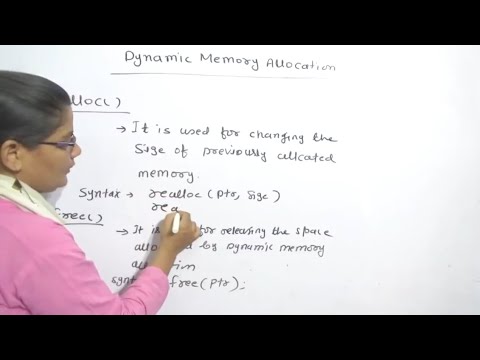 Dynamic Memory Allocation
lloc()
→ It is used for changing the
Size of previously allcated
memory.
Syntax → realloc (ptr, size)
rea
Free()
→ It is for releasing the space
by Dynamic memory
free(ptr);